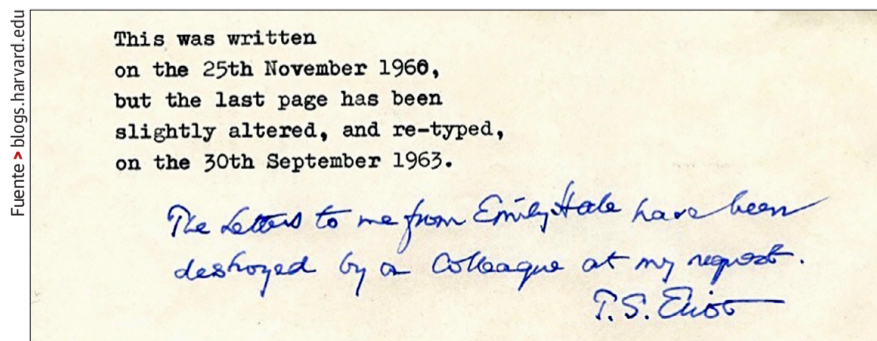 Fuente > blogs.harvard.edu
This was written
on the 25th November 1960,
but the last page has been
slightly altered, and re-typed,
on the 30th September 1963.
The Letters to me from Emily Hale have been
destroyed by a colleague at my request.
T. S. Eliot